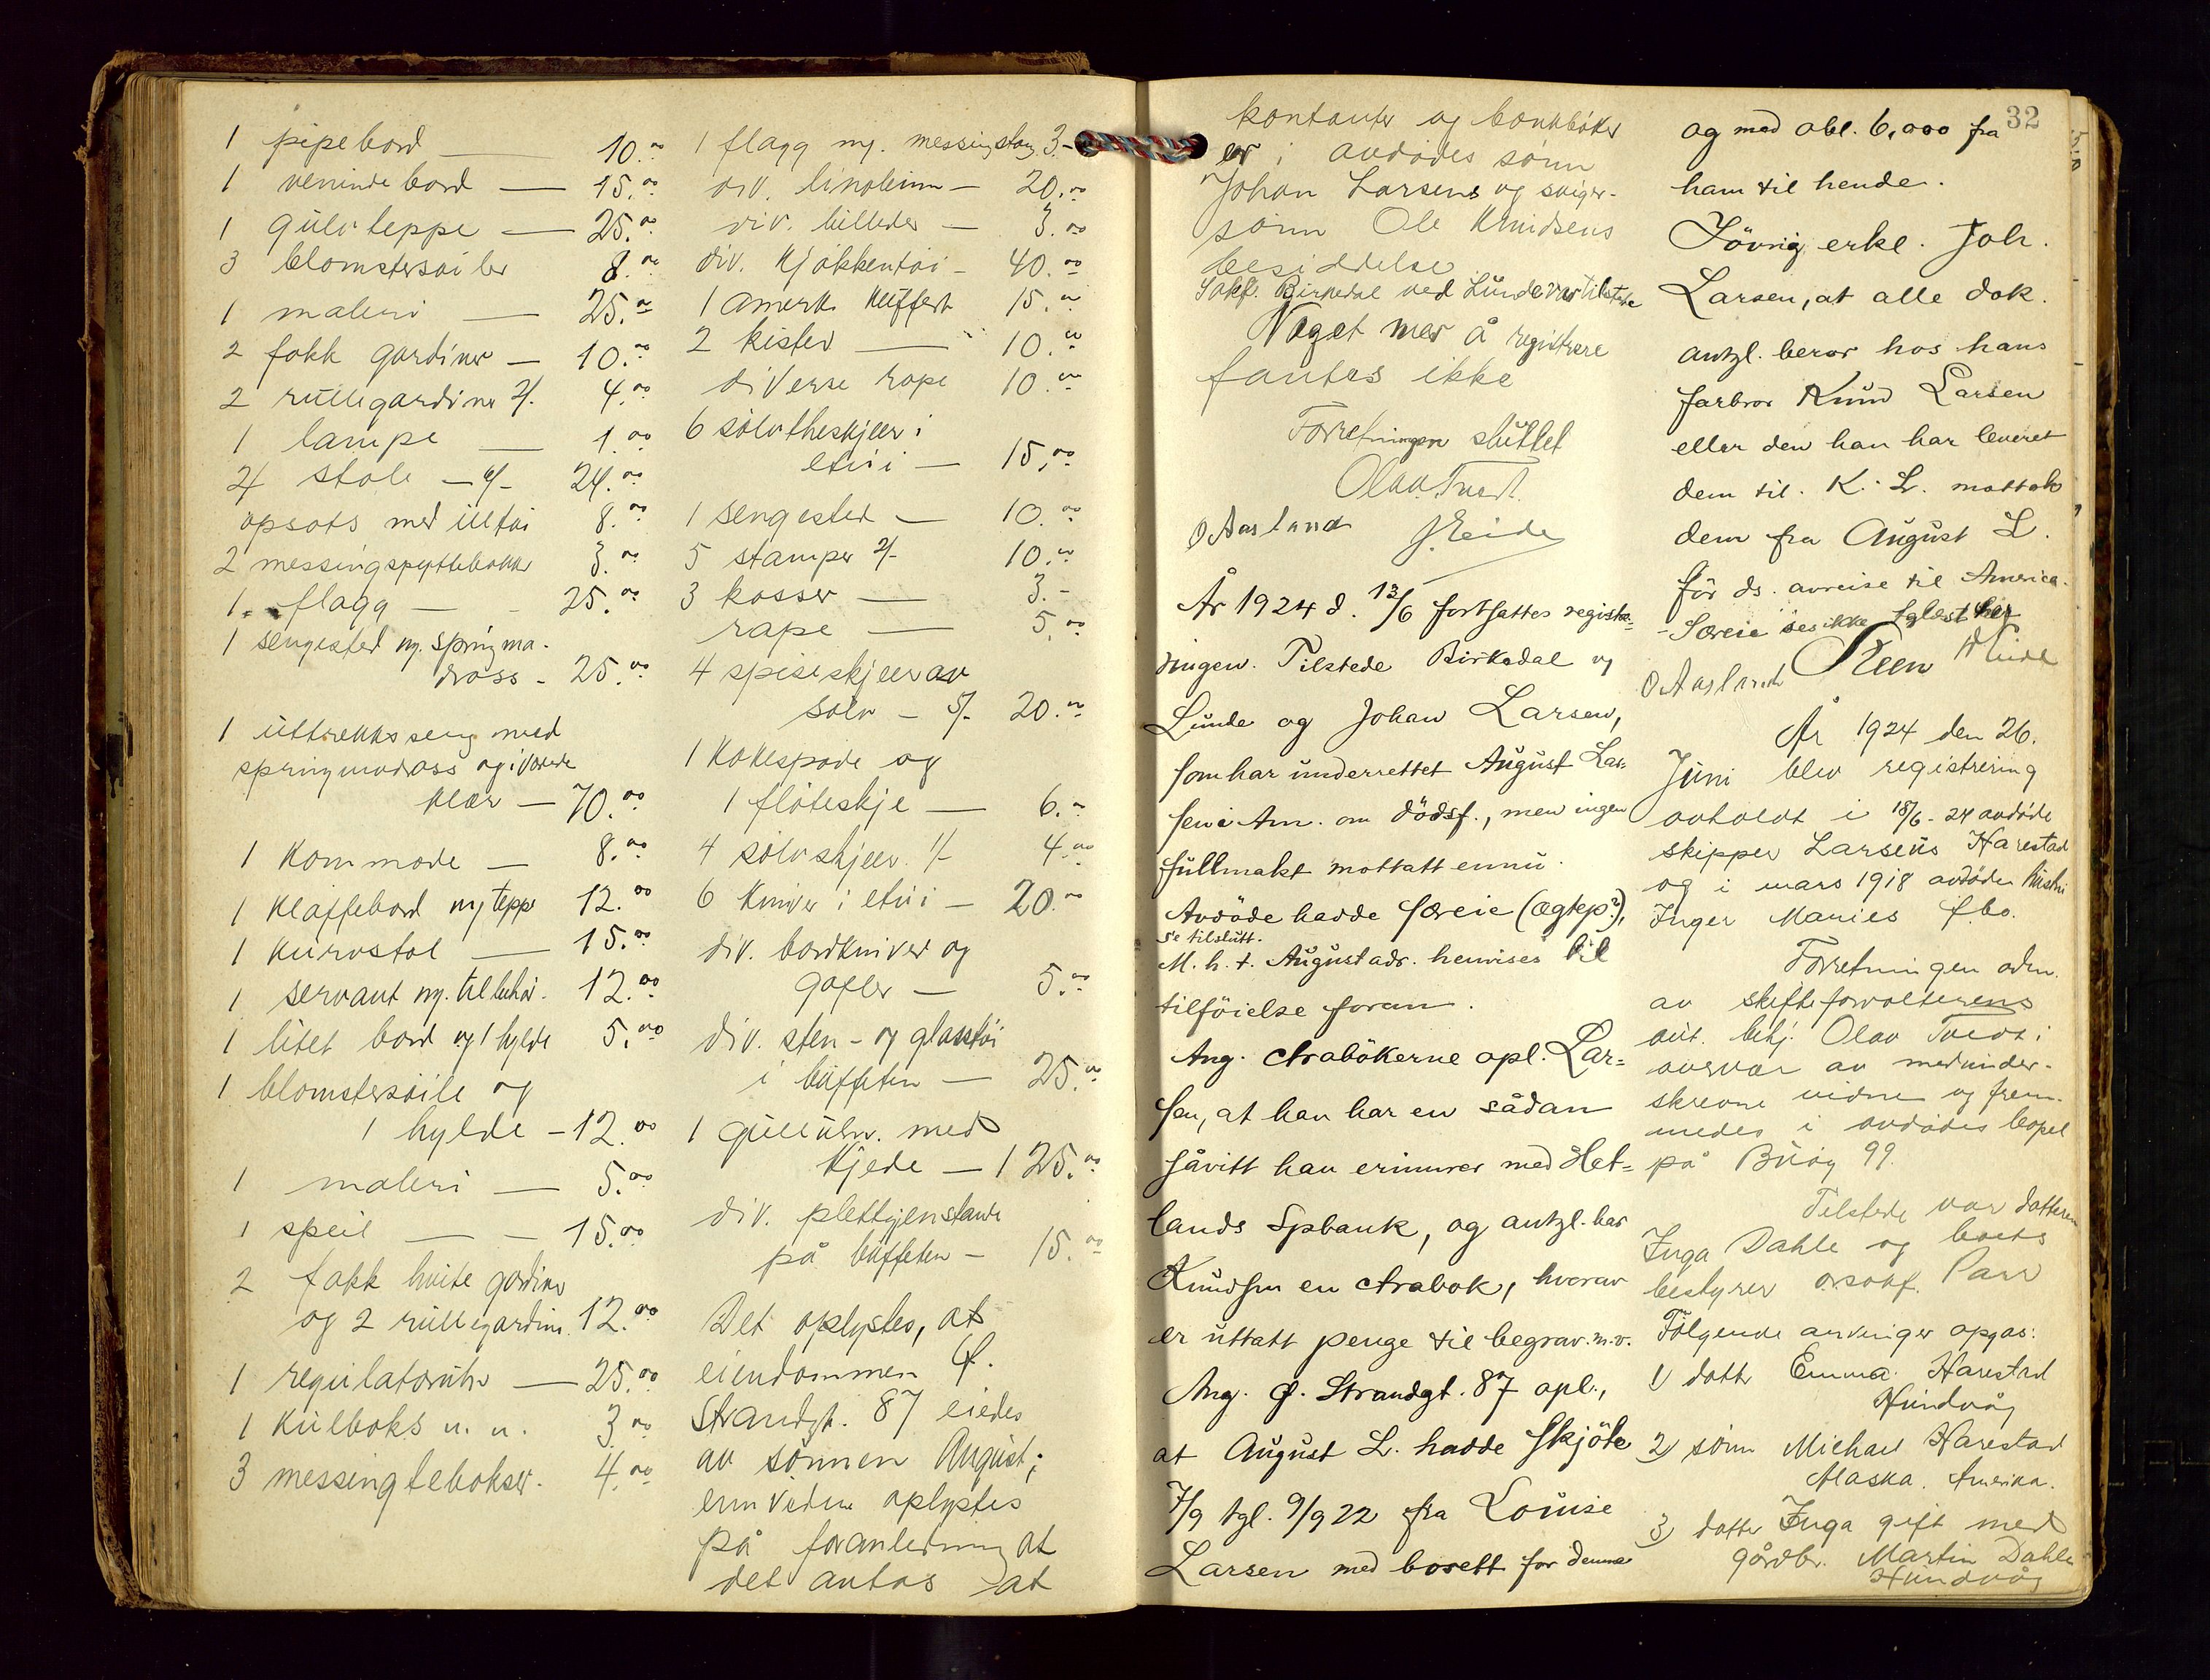 1 pipebord — 10.00
1 venindebord — 15.00
1 gulvteppe — 25.00
3 blomstersøiler 8.00
1 maleri — 25.00
2 fakk gardiner — 10.00
2 rullegardiner 2/- 4.00
1 lampe — 1.00
4 stole — 6/- 24.00
opsats med
8.00
2 messingspyttebakker 3.00
1 flagg — 25.00
1 sengested m/ springma-
drass - 25.00
1 uttrekksseng med
springmadrass og iværende
klær — 70.00
1 kommode — 8.00
1 klaffebord m/ teppe 12.00
1 kurvstol — 15.00
1 servant m/ tilbehør. 12.00
1 litet bord og 1 hylde 5.00
1 blomstersøile og
1 hylde - 12.00
1 maleri — 5.00
1 speil — - 15.00
2 fakk hvite gardiner
og 2 rullegardiner 12.00
1 regulatorur — 25.00
1 kulboks u. u. 3.00
3 messingtebokser. 4.00
1 flagg m/ messingstang 3.-
div. linoleum — 20.00
div. billeder — 3.00
div. kjøkkentøi - 40.00
1 amerk. kuffert 15.00
2 kister — 10.00
diverse rape 10.00
6 sølvtheskjeer i
etui — 15.00
1 sengested — 10.00
5 stamper 2/- 10.00
3 kasser — 3.-
rape — 5.00
4 spiseskjeer av
sølv — 5/- 20.00
1 kakespade og
1 fløteskje — 6.-
4 sølvskjeer 1/- 4.00
6 kniver i etui — 20.00
div. bordkniver og
gafler — 5.00
div. sten- og glasstøi
i buffeten — 25.00
1 gullur m. med
kjede — 125.00
div. plettgjenstande
på buffeten — 15.00
Det oplystes, at
eiendommen Ø.
Strandgt. 87 eiedes
av sønnen August;
enn videre oplystes
på foranledning at
det antas at
32
kontanter og bankbøker
er i avdødes sønn
Johan Larsens og sviger-
sønn Ole Knudsens
besiddelse
Sakf. Birkedal ved Lunde var tilstede
Noget mer å registrere
fantes ikke
Forretningen sluttet
Olav Tvedt.
O Aasland J. Eide
År 1924 d. 13/6 fortsattes registre-
ringen. Tilstede Birkedal v/
Lunde og Johan Larsen,
som har underrettet August Lar-
sen i Am. om dødsf., men ingen
fullmakt mottatt ennu.
Avdøde hadde særeie (ægtep?),
se tilslutt.
M. h. t. August adr. henvises til
tilføielse foran.
Ang. ctrabøkerne opl. Lar-
sen, at han har en sådan
såvitt han erinnrer med Het-
lands Spbank, og antgl. har
Knudsen en ctrabok, hvorav
er uttatt penge til begrav. m.v.
Ang. Ø. Strandgt. 87 opl.,
at August L. hadde skjöte
7/9 tgl. 9/9 22 fra Louise
Larsen med borett for denne
og med obl. 6,000 fra
ham til hende.
Iøvrig erkl. Joh.
Larsen, at alle dok.
antgl. beror hos hans
farbror Knud Larsen
eller den han har leveret
dem til. K. L. mottok
dem fra August L.
før ds. avreise til America.
- Særeie ses ikke tglest her
O Aasland Reen J Eide
År 1924 den 26.
Juni blev registrering
avholdt i 18/6 - 24 avdøde
skipper Larseus Harestad
og i mars 1918 avdøde hustru
Inger Maries fbo.
Forretningen adm.
av skifteforvalterens
aut. betj. Olav Tvedt i
overvær av medunder-
skrevne vidne og frem-
medes i avdødes bopel
på Buøy 99.
Tilstede var datteren
Inga Dahle og boets
bestyrer orsakf. Parr
Følgende arvinger opgas:
1) datter Emma Harestad
Hundvåg
2) sønn Michael Harestad
Alaska. Amerika.
3) datter Inga gift med
gårdbr. Martin Dahle
Hundvåg